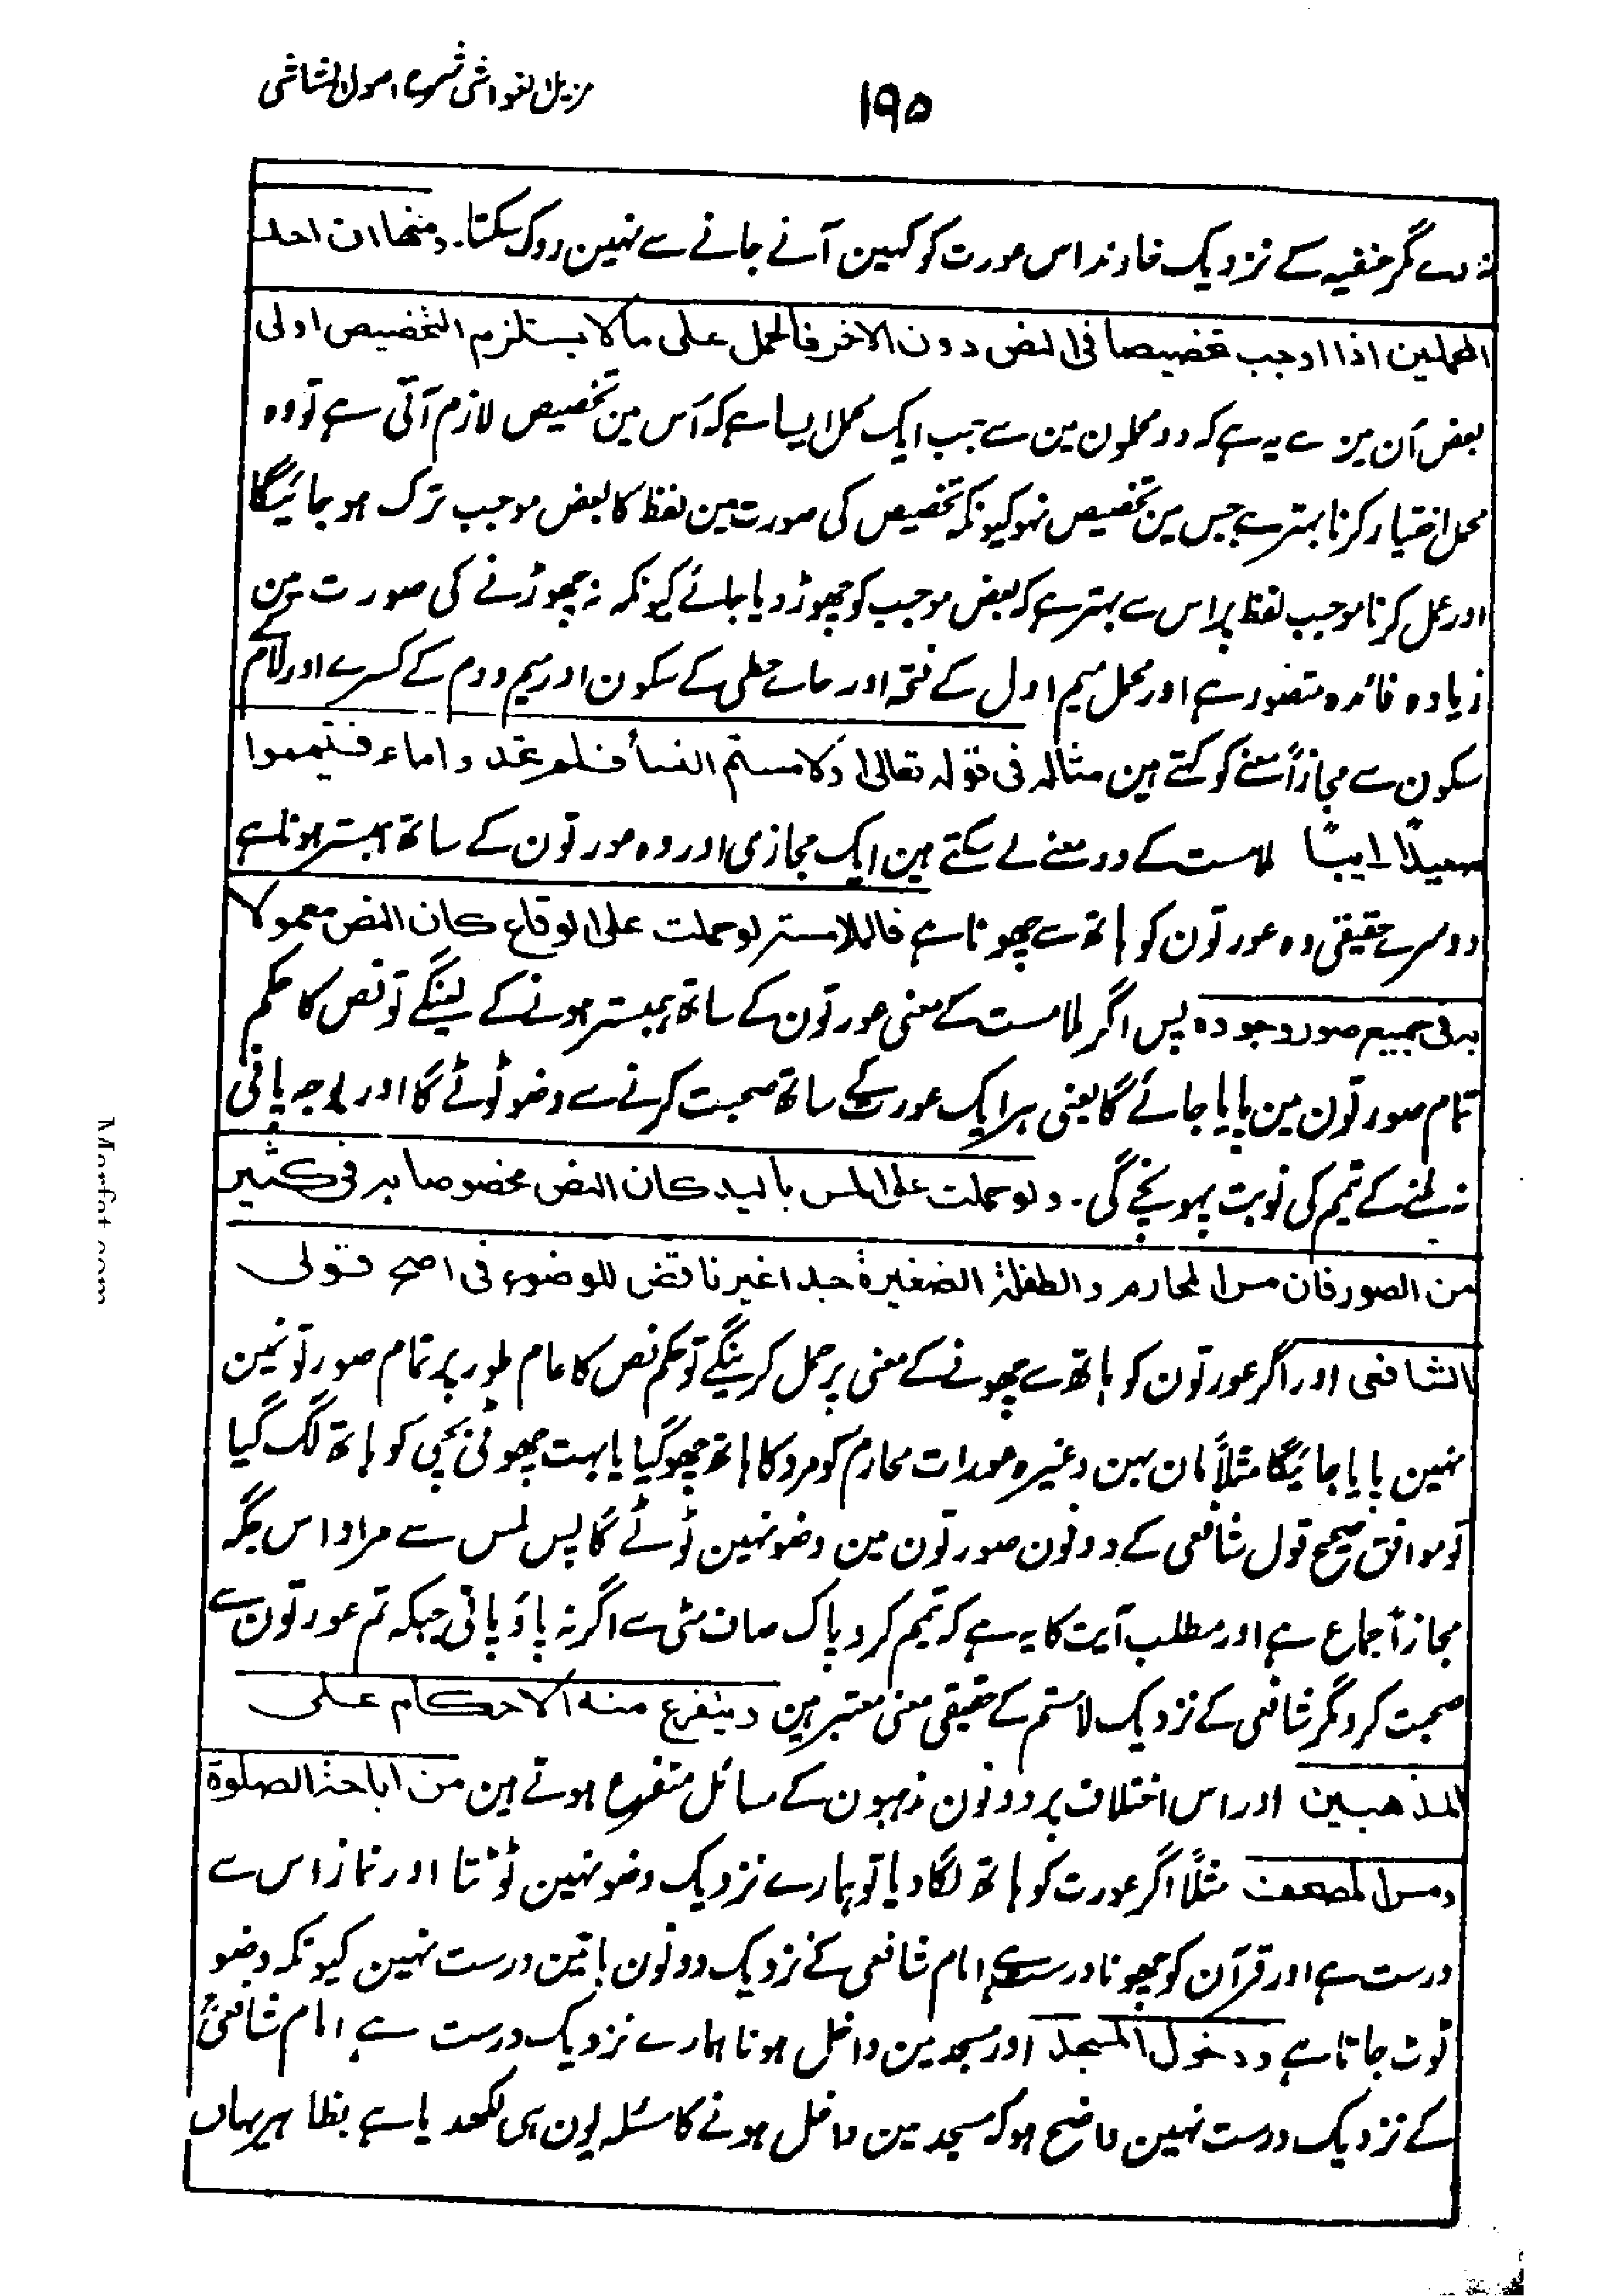 ۱۹۵
مزیل الغواشی شرح اصول الشاشی
نہ دے مگر حنفیہ کے نزدیک خاوند اس عورت کو کہین آنے جانے سے نہین روک سکتا۔ ومنھا ان احد
المحملین اذا اوجب تخصیصا فی النص دون الاخر فالحمل علی ما لا یستلزم التخصیص اولی
بعض اُن مین سے یہ ہے کہ دو محملون مین سے جب ایک محمل ایسا ہے کہ اُس مین تخصیص لازم آتی ہے تو وہ
محمل اختیار کرنا بہتر ہے جس مین تخصیص نہو کیونکہ تخصیص کی صورت مین لفظ کا بعض موجب ترک ہو جائیگا
اور عمل کرنا موجب لفظ پر اس سے بہتر ہے کہ بعض موجب کو چھوڑ دیا جائے کیونکہ نہ چھوڑنے کی صورت مین
زیادہ فائدہ متصور ہے اور محمل میم اول کے فتحہ اور حاے حطی کے سکون اور میم دوم کے کسرے اور لام کے
سکون سے مجازاً معنے کو کہتے ہین مثالہ فی قولہ تعالی او لامستم النساء فلم تجدوا ماء فتیمموا
صعیدًا طیبًا ملامست کے دو معنے لے سکتے ہین ایک مجازی اور وہ عورتون کے ساتھ ہمبستر ہونا ہے
دوسرے حقیقی وہ عورتون کو ہاتھ سے چھونا ہے فالملامسۃ لو حملت علی الوقاع کان النص معمولا
بہ فی جمیع صور وجودہ پس اگر ملامست کے معنی عورتون کے ساتھ ہمبستر ہونے کے لینگے تو نص کا حکم
تمام صورتون مین پایا جائے گا یعنی ہر ایک عورت کے ساتھ صحبت کرنے سے وضو ٹوٹے گا اور بوجہ پانی
نہ ملنے کے تیمم کی نوبت پہونچے گی۔ ولو حملت علی المس بالید کان النص مخصوصا بہ فی کثیر
من الصور فان مس المحارم والطفلۃ الصغیرۃ جدا غیر ناقض للوضوء فی اصح قولی
الشافعی اور اگر عورتون کو ہاتھ سے چھونے کے معنی پر حمل کرینگے تو حکم نص کا عام طور پر تمام صورتونمین
نہین پایا جائیگا مثلاً مان بہن وغیرہ عورات محارم کو مرد کا ہاتھ چھو گیا یا بہت چھوٹی بچی کو ہاتھ لگ گیا
تو موافق صحیح قول شافعی کے دونون صورتون مین وضو نہین ٹوٹے گا پس لمس سے مراد اس جگہ
مجازاً جماع ہے اور مطلب آیت کا یہ ہے کہ تیمم کرو پاک صاف مٹی سے اگر نہ پاؤ پانی جبکہ تم عورتون سے
صحبت کرو مگر شافعی کے نزدیک لامستم کے حقیقی معنی معتبر ہین ویتفرع منہ الاحکام علی
المذھبین اور اس اختلاف پر دونون مذہبون کے مسائل متفرع ہوتے ہین من اباحۃ الصلوۃ
ومس المصحف مثلاً اگر عورت کو ہاتھ لگا دیا تو ہمارے نزدیک وضو نہین ٹوٹتا اور نماز اس سے
درست ہے اور قرآن کو چھونا درست ہے امام شافعی کے نزدیک دونون باتین درست نہین کیونکہ وضو
ٹوٹ جاتا ہے ودخول المسجد اور مسجد مین داخل ہونا ہمارے نزدیک درست ہے امام شافعیؒ
کے نزدیک درست نہین واضح ہو کہ مسجد مین داخل ہونے کا مسئلہ یون ہی لکھدیا ہے بظاہر یہاں